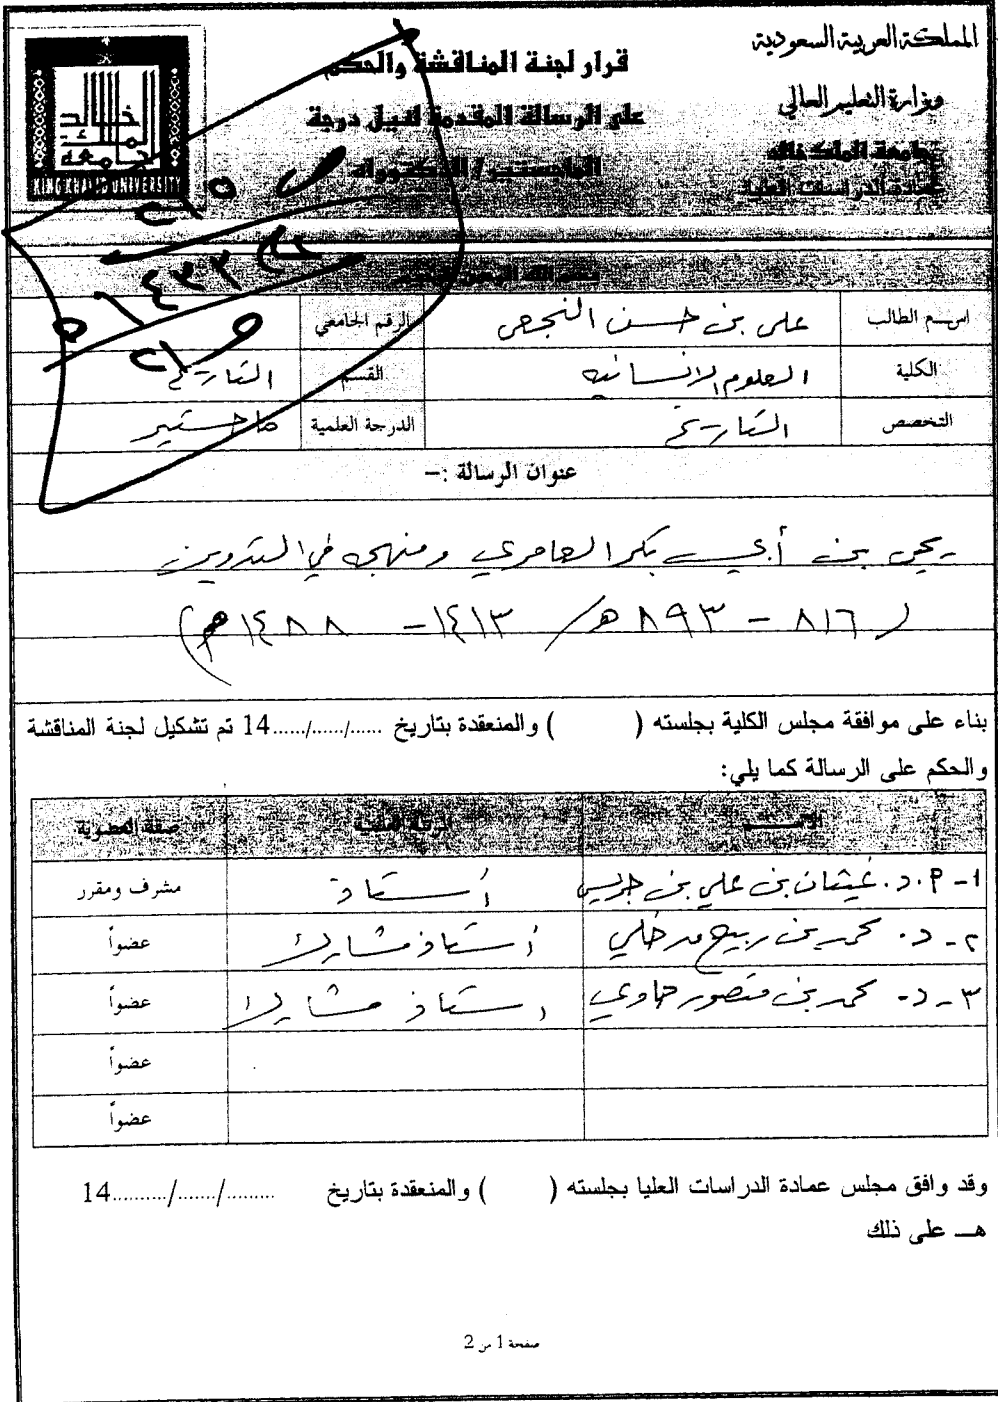 المملكة العربية السعودية
وزارة التعليم العالي
جامعة الملك خالد
عمادة الدراسات العليا
قرار لجنة المناقشة والحكم
على الرسالة المقدمة لنيل درجة
الماجستير / الدكتوراه
KING KHALID UNIVERSITY
بسم الله الرحمن الرحيم
اسم الطالب علي بن حسن النجعي الرقم الجامعي
الكلية العلوم الإنسانية القسم التاريخ
التخصص التاريخ الدرجة العلمية ماجستير
عنوان الرسالة :-
يحيى بن أبي بكر العامري ومنهجه في التدوين
(٨١٦ - ٨٩٣ هـ / ١٤١٣ - ١٤٨٨م)
بناء على موافقة مجلس الكلية بجلسته ( ) والمنعقدة بتاريخ ....../....../......14 تم تشكيل لجنة المناقشة
والحكم على الرسالة كما يلي:
الاسم المرتبة العلمية صفة العضوية
١- أ.د. غيثان بن علي بن جريس أستاذ مشرف ومقرر
٢- د. محمد بن ربيع مدخلي أستاذ مشارك عضواً
٣- د. محمد بن منصور حاوي أستاذ مشارك عضواً
عضواً
عضواً
وقد وافق مجلس عمادة الدراسات العليا بجلسته ( ) والمنعقدة بتاريخ ........./......./..........14
هـ على ذلك
صفحة 1 من 2